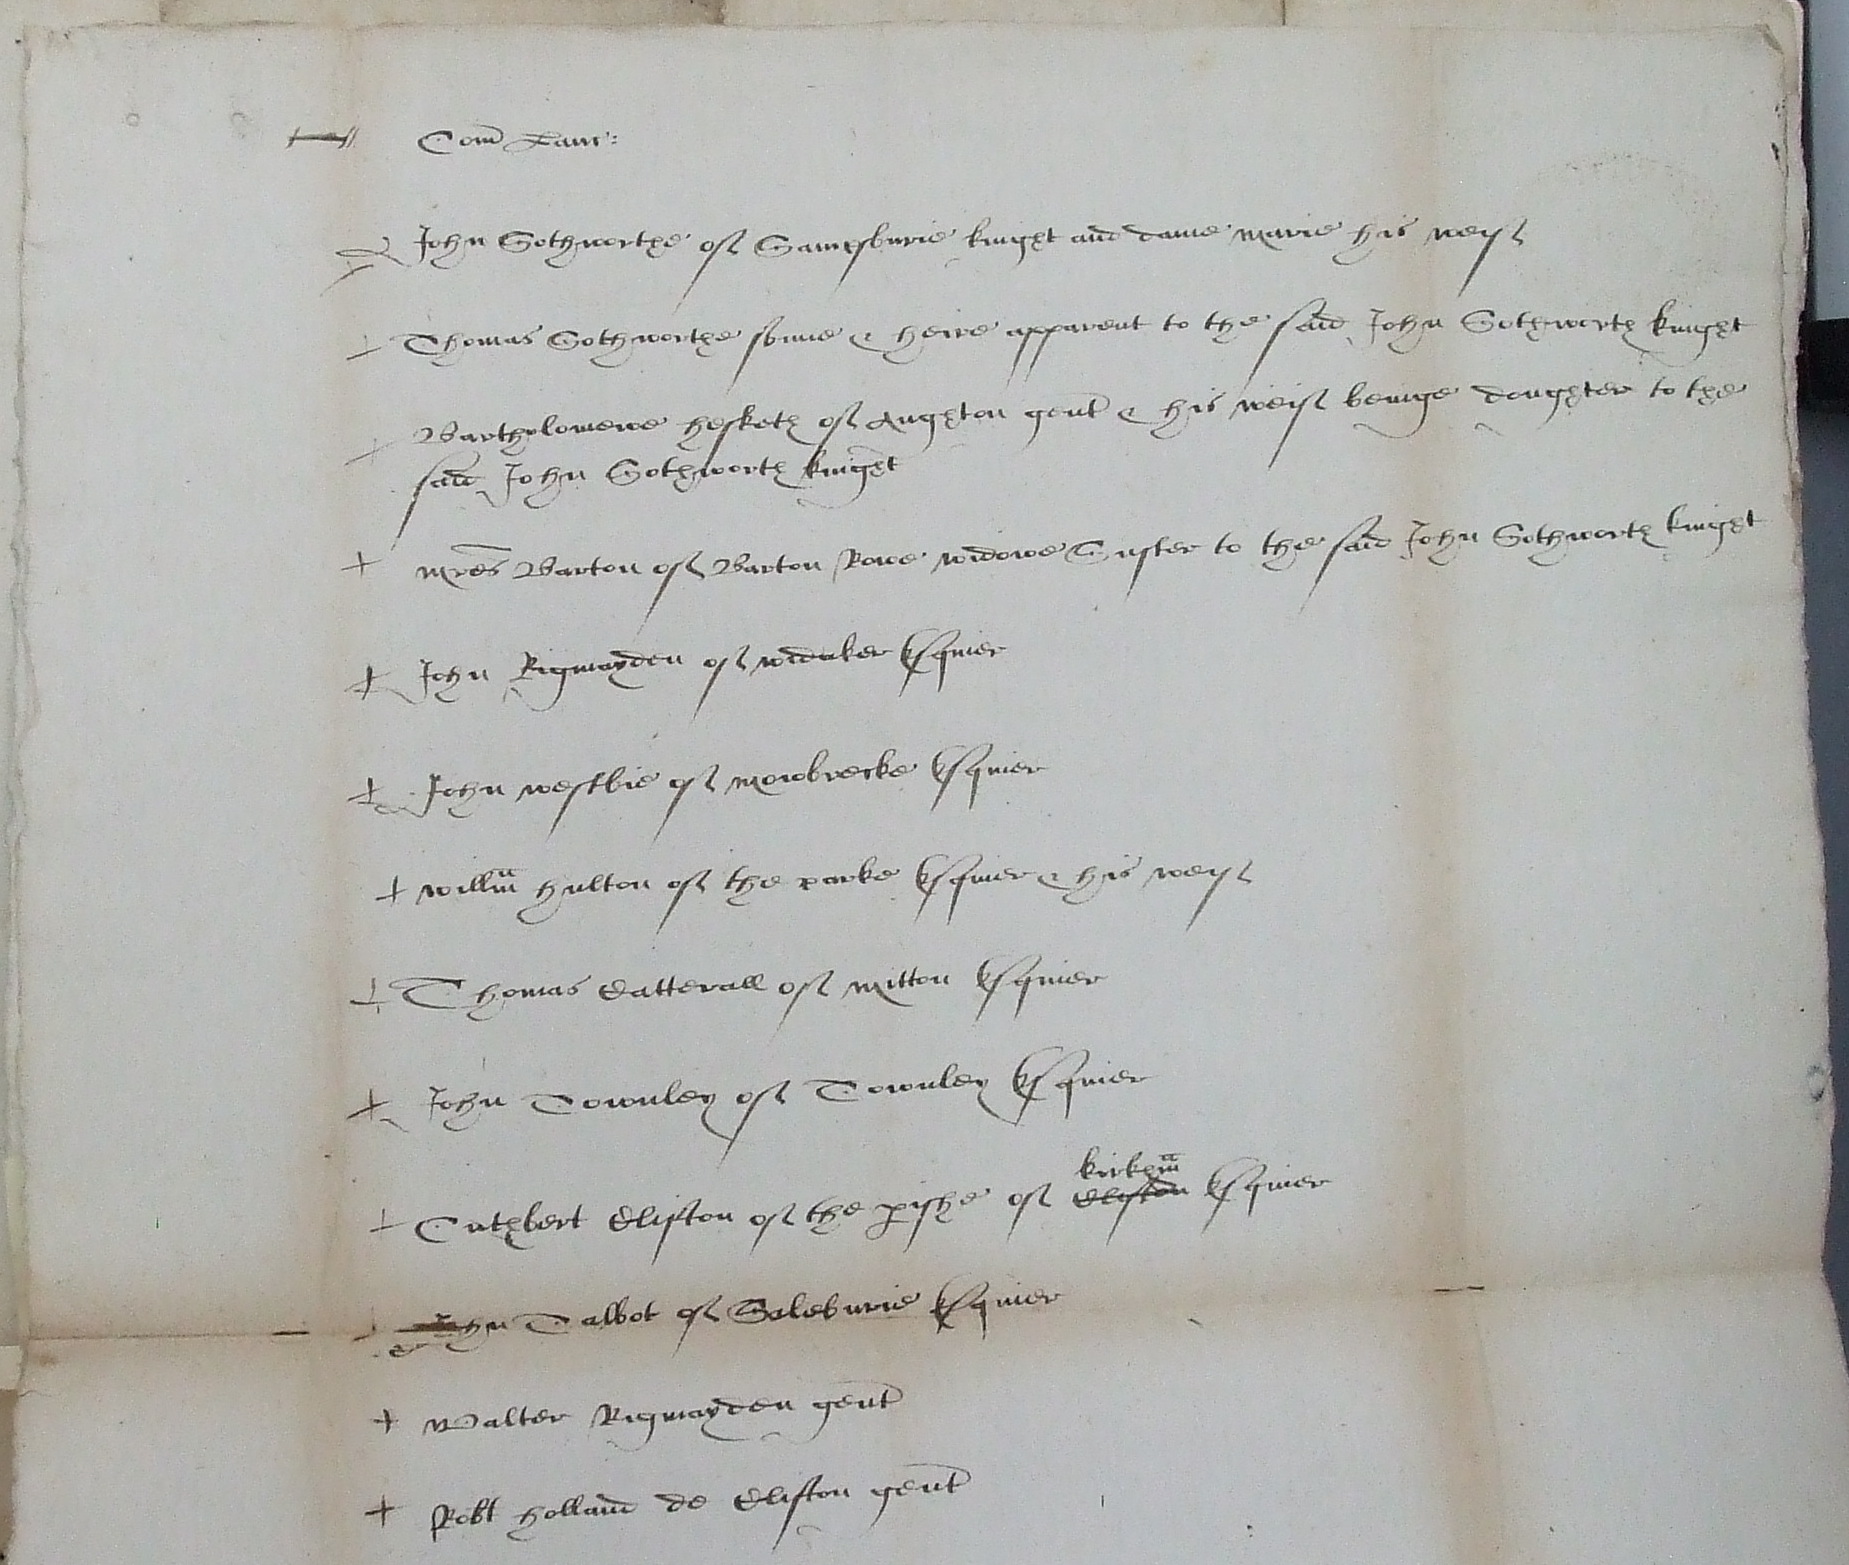 Com Lanc:
John Sothworthe of Samesburie knight and dame Marie his weif
Thomas Sothworthe sonne & heire apparent to the said John Sothworth knight
Bartholomewe hesketh of Aughton gent & his weif beinge doughter to the
said John Sothworth knight
Mres Barton of Barton Rowe widowe Suster to the said John Sothworth knight
John Rigmayden of widaker Esquier
John westbie of Mowbrecke Esquier
willm hulton of the parke Esquier & his weif
Thomas Catterall of Mitton Esquier
John Townley of Townley Esquier
kirkhm
Cuthbert Clifton of the pishe of Clifton Esquier
John Talbot of Saleburie Esquier
Walter Rigmayden gent
Robt holland de Clifton gent